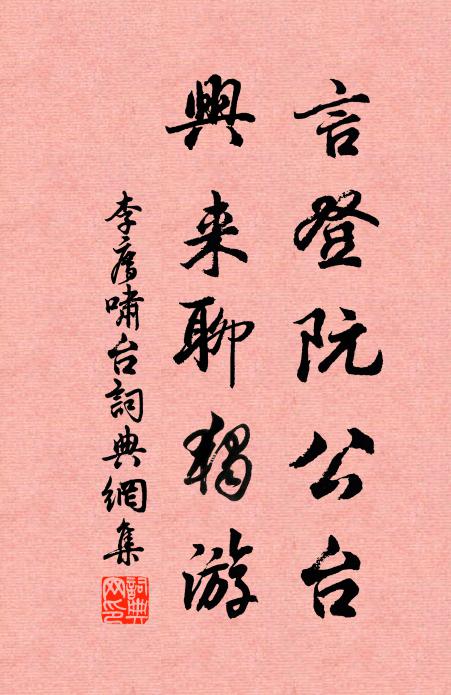 言登阮公台
興来聊獨游
李廌嘯台詞典網集
詞典
网印